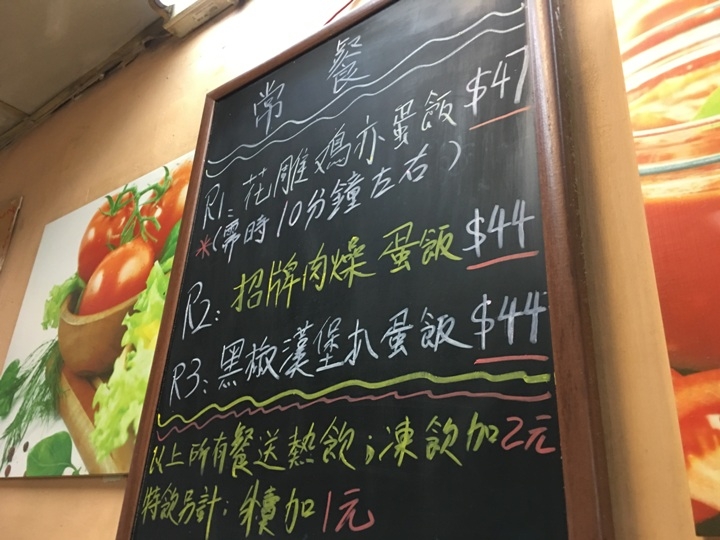 常餐
R1: 花雕鸡亦蛋飯 $47
*(需時10分鐘左右)
R2: 招牌肉燥蛋飯 $44
R3: 黑椒漢堡扒蛋飯 $44
以上所有餐送熱飲;凍飲加2元
特飲另計; 加1元